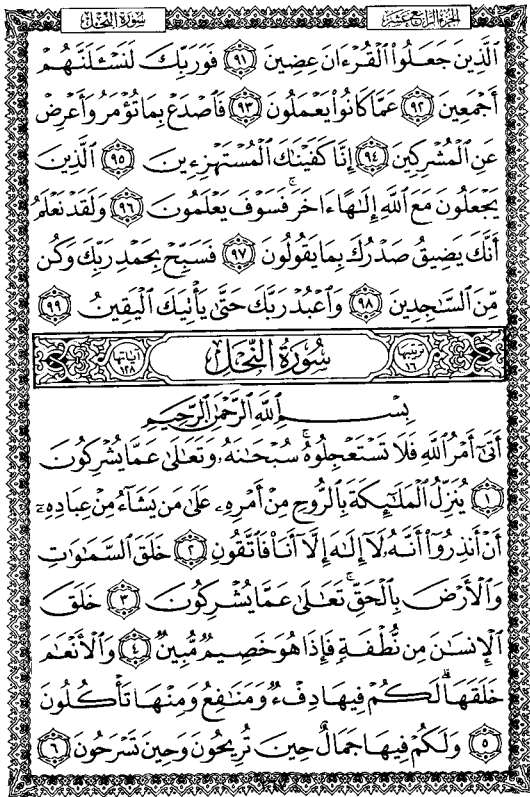 الجزء الرابع عشر سورة النحل
الَّذِينَ جَعَلُوا الْقُرْءَانَ عِضِينَ ٩١ فَوَرَبِّكَ لَنَسْـَٔلَنَّهُمْ
أَجْمَعِينَ ٩٢ عَمَّا كَانُوا يَعْمَلُونَ ٩٣ فَاصْدَعْ بِمَا تُؤْمَرُ وَأَعْرِضْ
عَنِ الْمُشْرِكِينَ ٩٤ إِنَّا كَفَيْنَاكَ الْمُسْتَهْزِءِينَ ٩٥ الَّذِينَ
يَجْعَلُونَ مَعَ اللَّهِ إِلَـٰهًا ءَاخَرَ ۚ فَسَوْفَ يَعْلَمُونَ ٩٦ وَلَقَدْ نَعْلَمُ
أَنَّكَ يَضِيقُ صَدْرُكَ بِمَا يَقُولُونَ ٩٧ فَسَبِّحْ بِحَمْدِ رَبِّكَ وَكُن
مِّنَ السَّـٰجِدِينَ ٩٨ وَاعْبُدْ رَبَّكَ حَتَّىٰ يَأْتِيَكَ الْيَقِينُ ٩٩
ترتيبها ١٦ سُورَةُ النَّحْلِ آياتها ١٢٨
بِسْمِ اللَّهِ الرَّحْمَـٰنِ الرَّحِيمِ
أَتَىٰٓ أَمْرُ اللَّهِ فَلَا تَسْتَعْجِلُوهُ ۚ سُبْحَـٰنَهُۥ وَتَعَـٰلَىٰ عَمَّا يُشْرِكُونَ
١ يُنَزِّلُ الْمَلَـٰٓئِكَةَ بِالرُّوحِ مِنْ أَمْرِهِۦ عَلَىٰ مَن يَشَآءُ مِنْ عِبَادِهِۦٓ
أَنْ أَنذِرُوٓا أَنَّهُۥ لَآ إِلَـٰهَ إِلَّآ أَنَا۠ فَاتَّقُونِ ٢ خَلَقَ السَّمَـٰوَٰتِ
وَالْأَرْضَ بِالْحَقِّ ۚ تَعَـٰلَىٰ عَمَّا يُشْرِكُونَ ٣ خَلَقَ
الْإِنسَـٰنَ مِن نُّطْفَةٍ فَإِذَا هُوَ خَصِيمٌ مُّبِينٌ ٤ وَالْأَنْعَـٰمَ
خَلَقَهَا ۗ لَكُمْ فِيهَا دِفْءٌ وَمَنَـٰفِعُ وَمِنْهَا تَأْكُلُونَ
٥ وَلَكُمْ فِيهَا جَمَالٌ حِينَ تُرِيحُونَ وَحِينَ تَسْرَحُونَ ٦